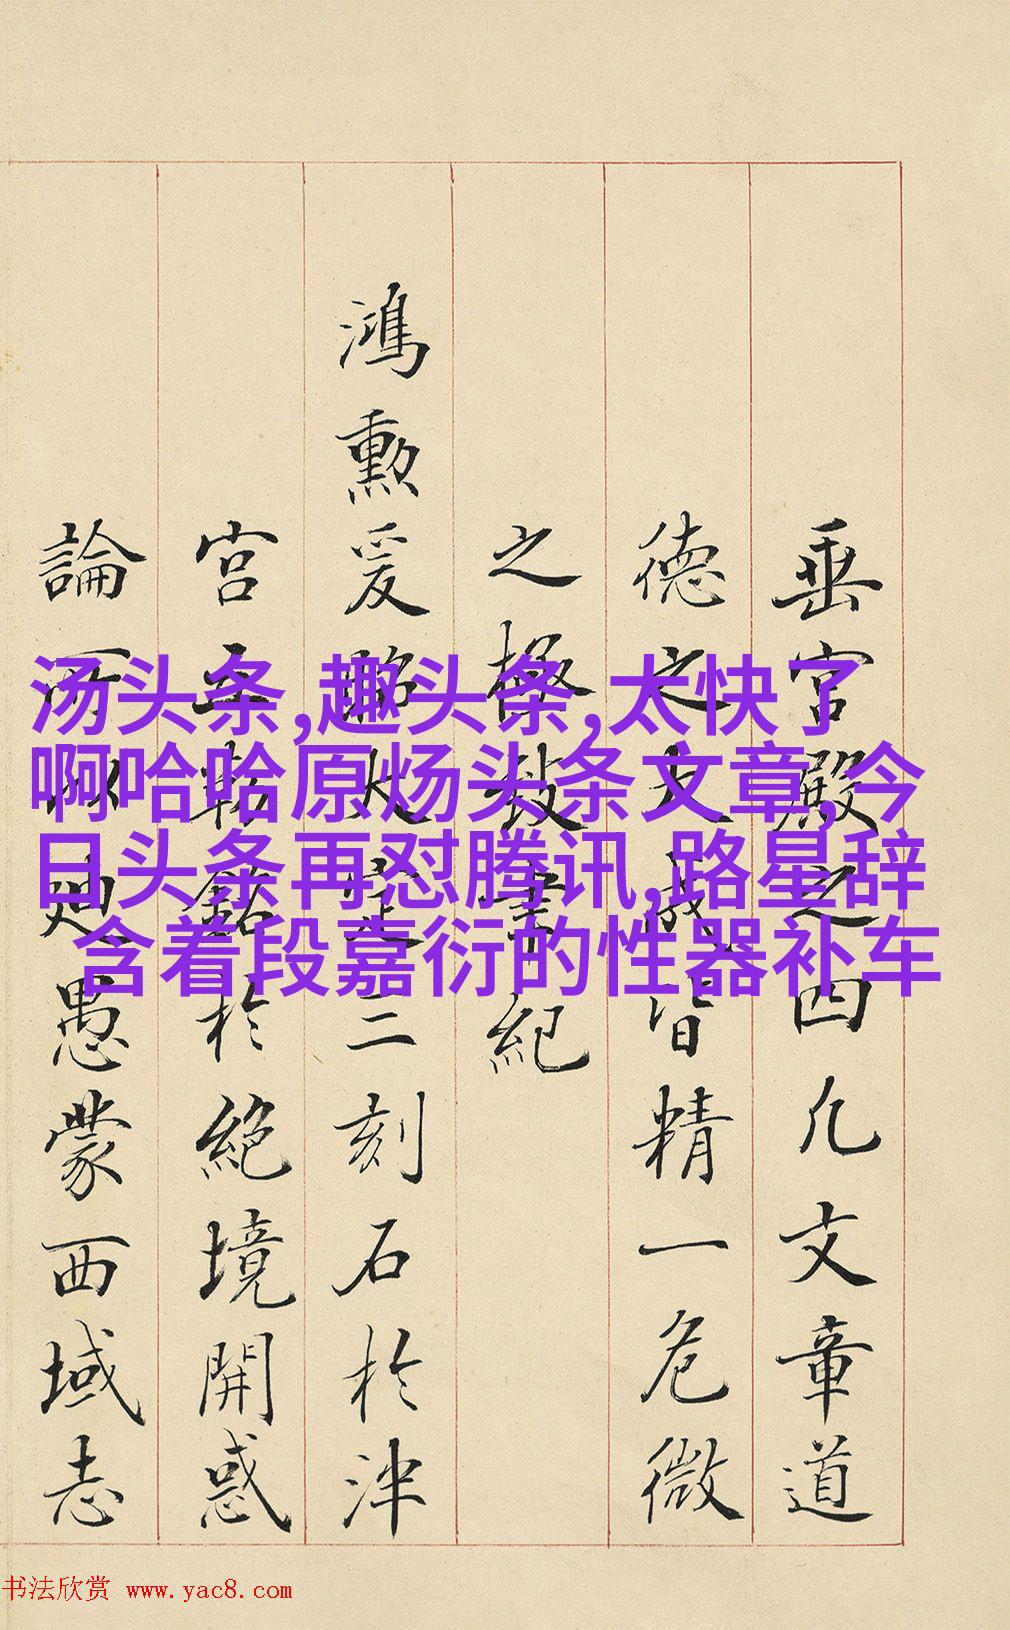 汤头条,趣头条,太快了
啊哈哈原炀头条文章,今
日头条再怼腾讯,路星辞
含着段嘉衍的性器补车
垂官殿之四凡文章道
德之大成皆精一危微
之極紀
鴻勳爰大定三刻石於津
宮五勒銘於絕境開惑
論愚蒙西域志
书法欣赏 www.yac8.com